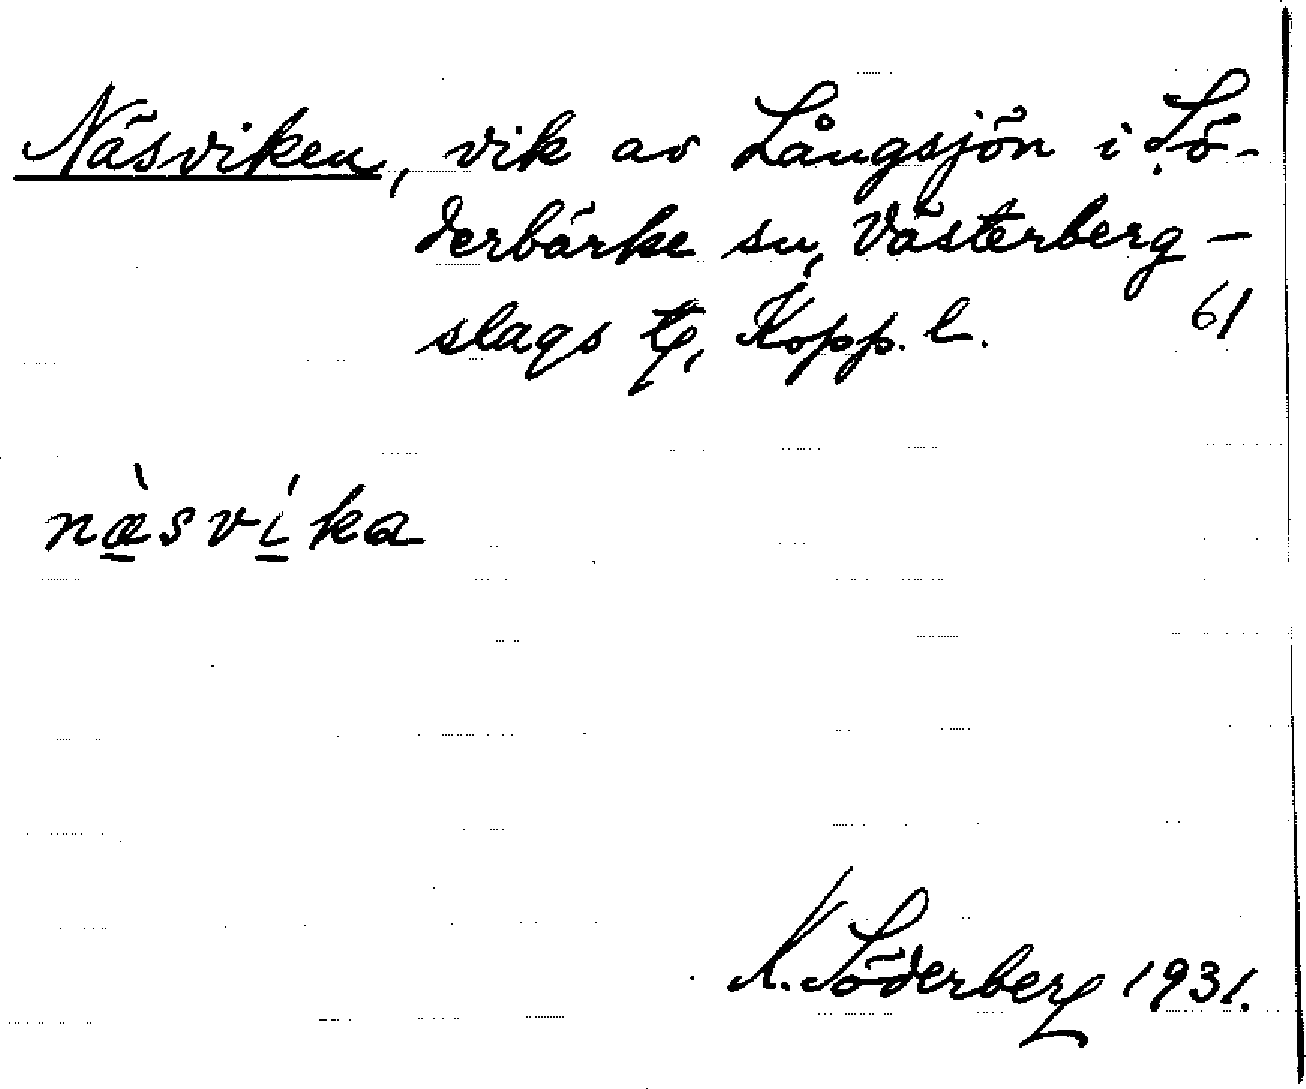 Näsviken, vik av Långsjön i Sö-
derbärke sn, Västerberg-
slags tg, Kopp. l. 61
næ̀svíka
K. Söderberg 1931.